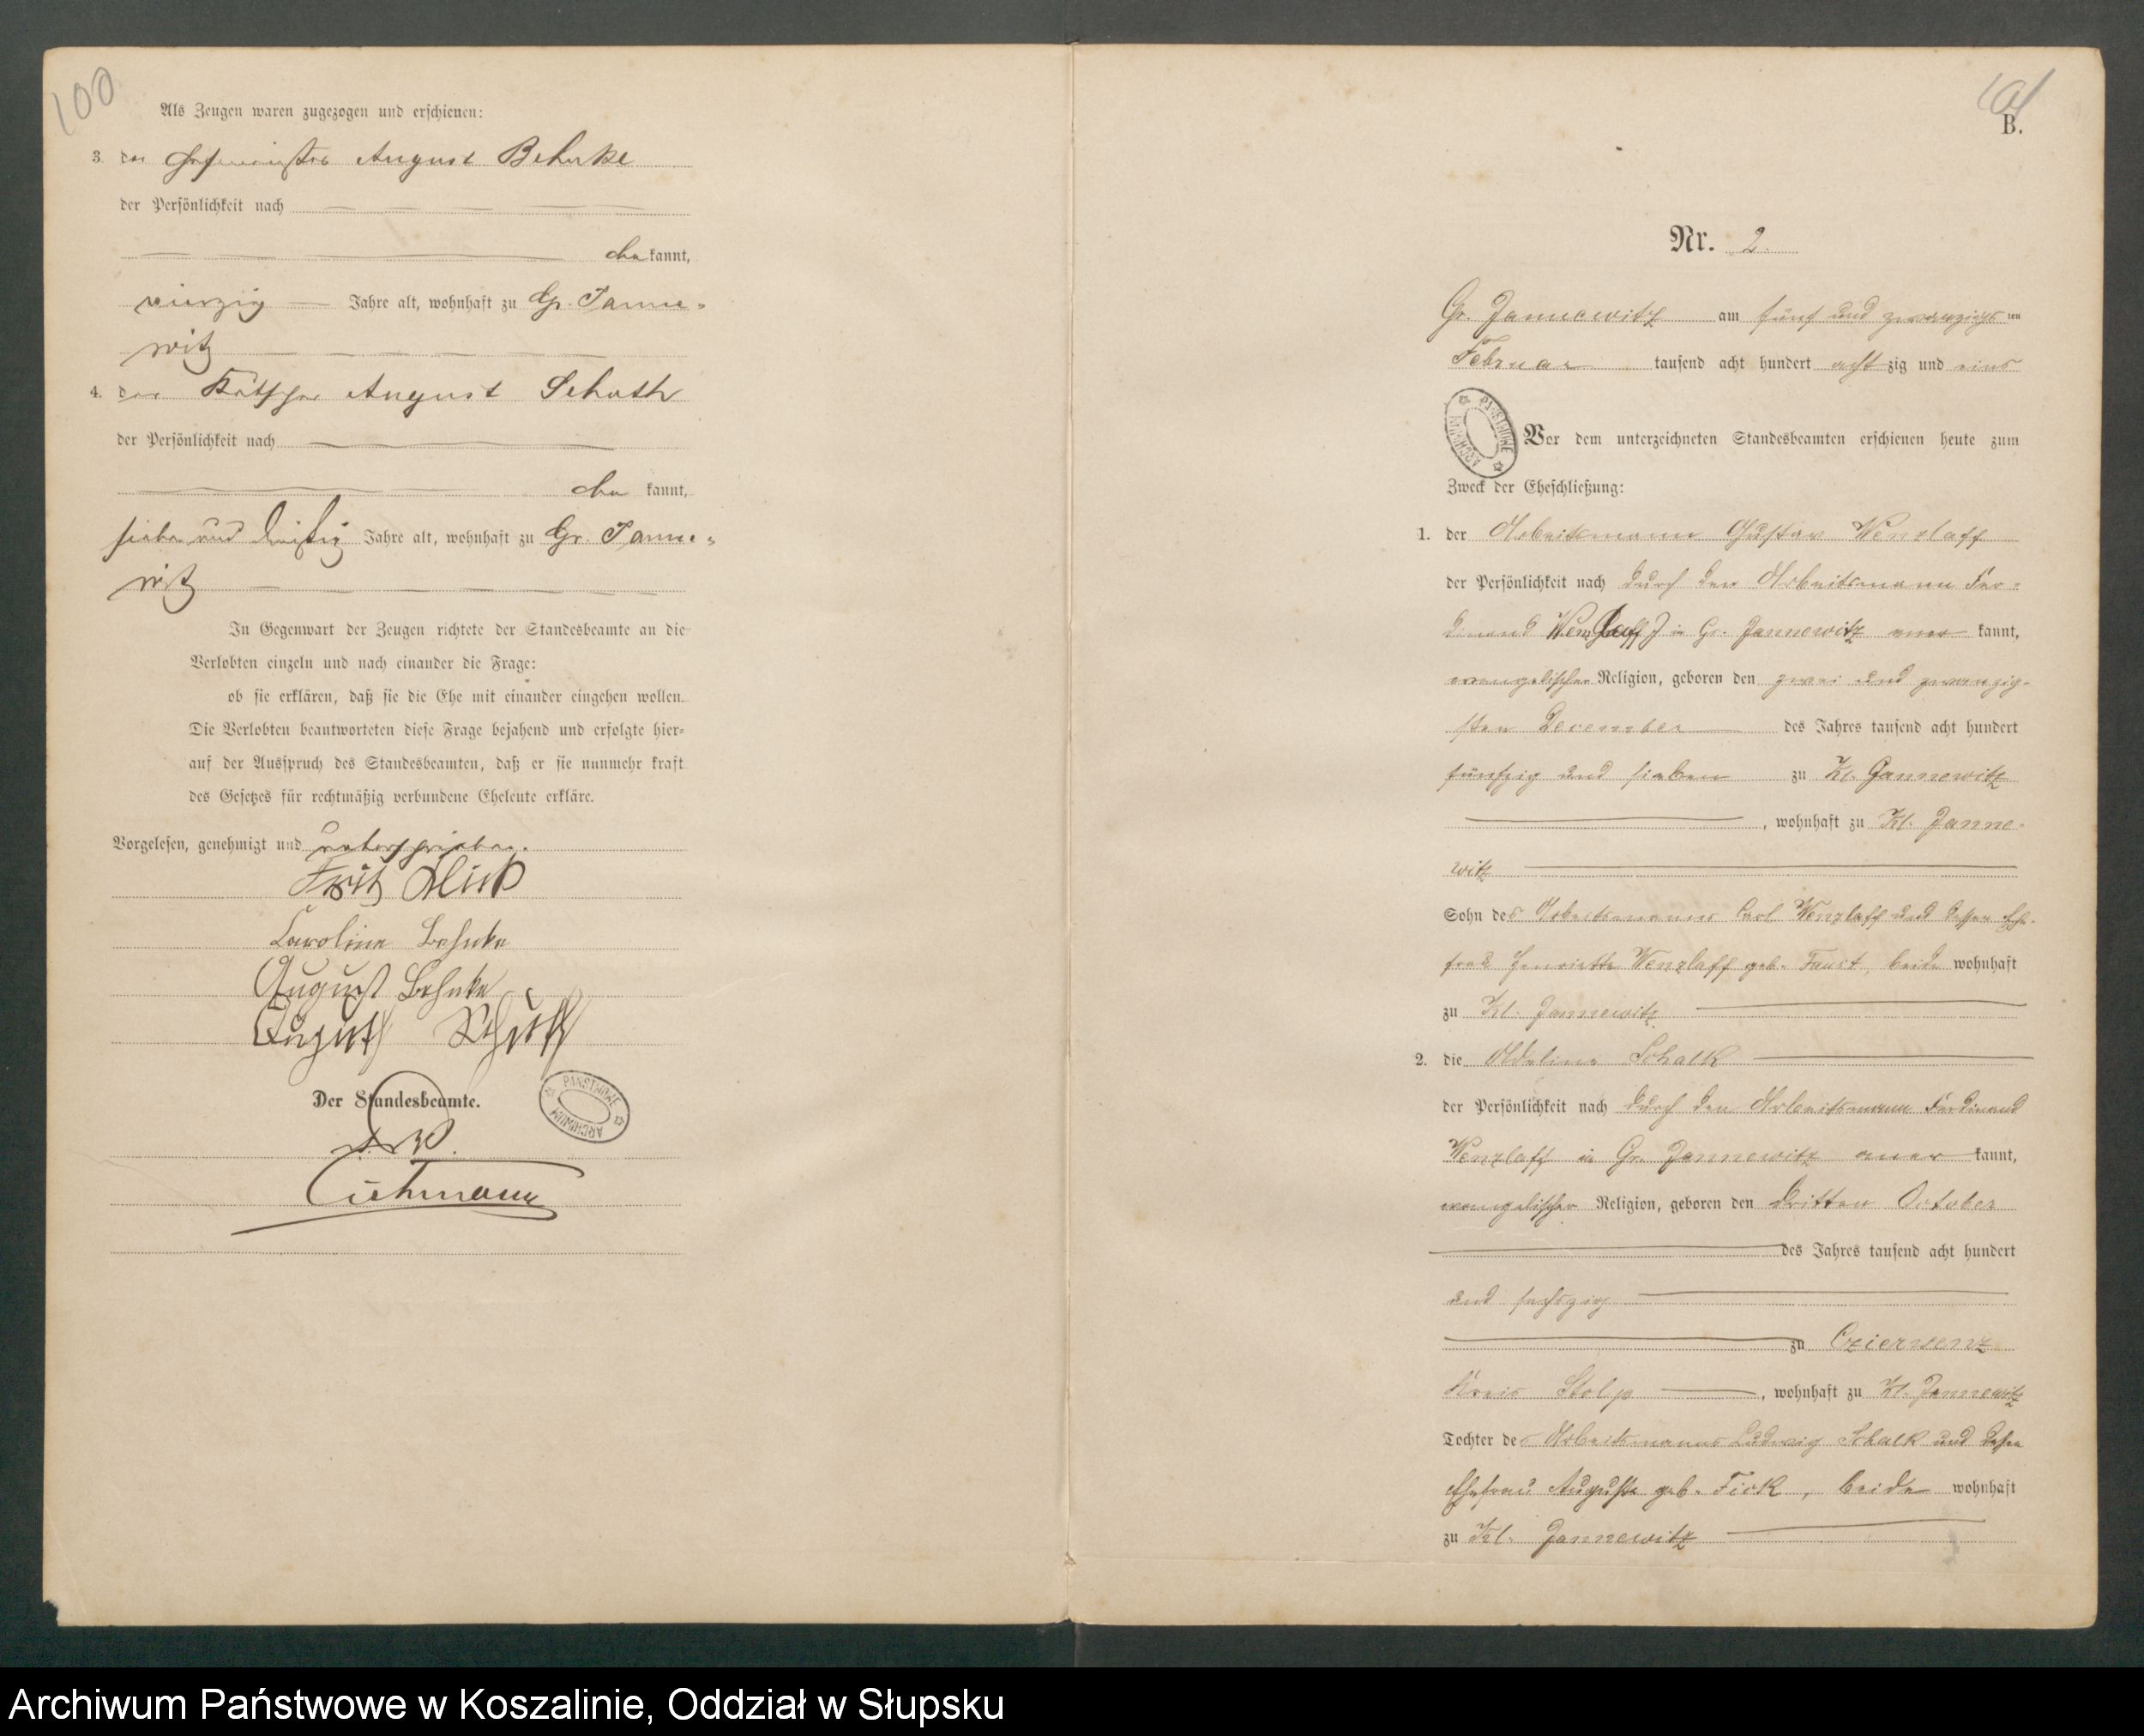 100
Als Zeugen waren zugezogen und erschienen:
3. der Hofmeister August Behnke
der Persönlichkeit nach
bekannt,
vierzig Jahre alt, wohnhaft zu Gr. Janne-
witz
4. der Käthner August Schuth
der Persönlichkeit nach
bekannt,
sieben und dreißig Jahre alt, wohnhaft zu Gr. Janne-
witz
In Gegenwart der Zeugen richtete der Standesbeamte an die
Verlobten einzeln und nach einander die Frage:
ob sie erklären, daß sie die Ehe mit einander eingehen wollen.
Die Verlobten beantworteten diese Frage bejahend und erfolgte hier-
auf der Ausspruch des Standesbeamten, daß er sie nunmehr kraft
des Gesetzes für rechtmäßig verbundene Eheleute erkläre.
Vorgelesen, genehmigt und unterschrieben.
Fritz
Caroline Behnke
August Behnke
August
Der Standesbeamte.
PAŃSTWOWE ARCHIWUM
101
B.
Nr. 2.
Gr. Jannewitz am fünf und zwanzigsten
Februar tausend acht hundert achtzig und eins
PAŃSTWOWE ARCHIWUM
Vor dem unterzeichneten Standesbeamten erschienen heute zum
Zweck der Eheschließung:
1. der Arbeitsmann Gustav Wenzlaff
der Persönlichkeit nach durch den Arbeitsmann Fer-
dinand Wenzlaff in Gr. Jannewitz anerkannt,
evangelischer Religion, geboren den zwei und zwanzig-
sten December des Jahres tausend acht hundert
fünfzig und sieben zu Kl. Jannewitz
, wohnhaft zu Kl. Janne-
witz
Sohn des Arbeitsmanns Carl Wenzlaff und dessen Ehe-
frau Henriette Wenzlaff geb. Faust, beide wohnhaft
zu Kl. Jannewitz
2. die Adeline Schalk
der Persönlichkeit nach durch den Arbeitsmann Ferdinand
Wenzlaff in Gr. Jannewitz anerkannt,
evangelischer Religion, geboren den dritten October
des Jahres tausend acht hundert
und sechszig
zu Czierwenz
Kreis Stolp, wohnhaft zu Kl. Jannewitz
Tochter des Arbeitsmanns Ludwig Schalk und dessen
Ehefrau Auguste geb. Fick, beide wohnhaft
zu Kl. Jannewitz
Archiwum Państwowe w Koszalinie, Oddział w Słupsku